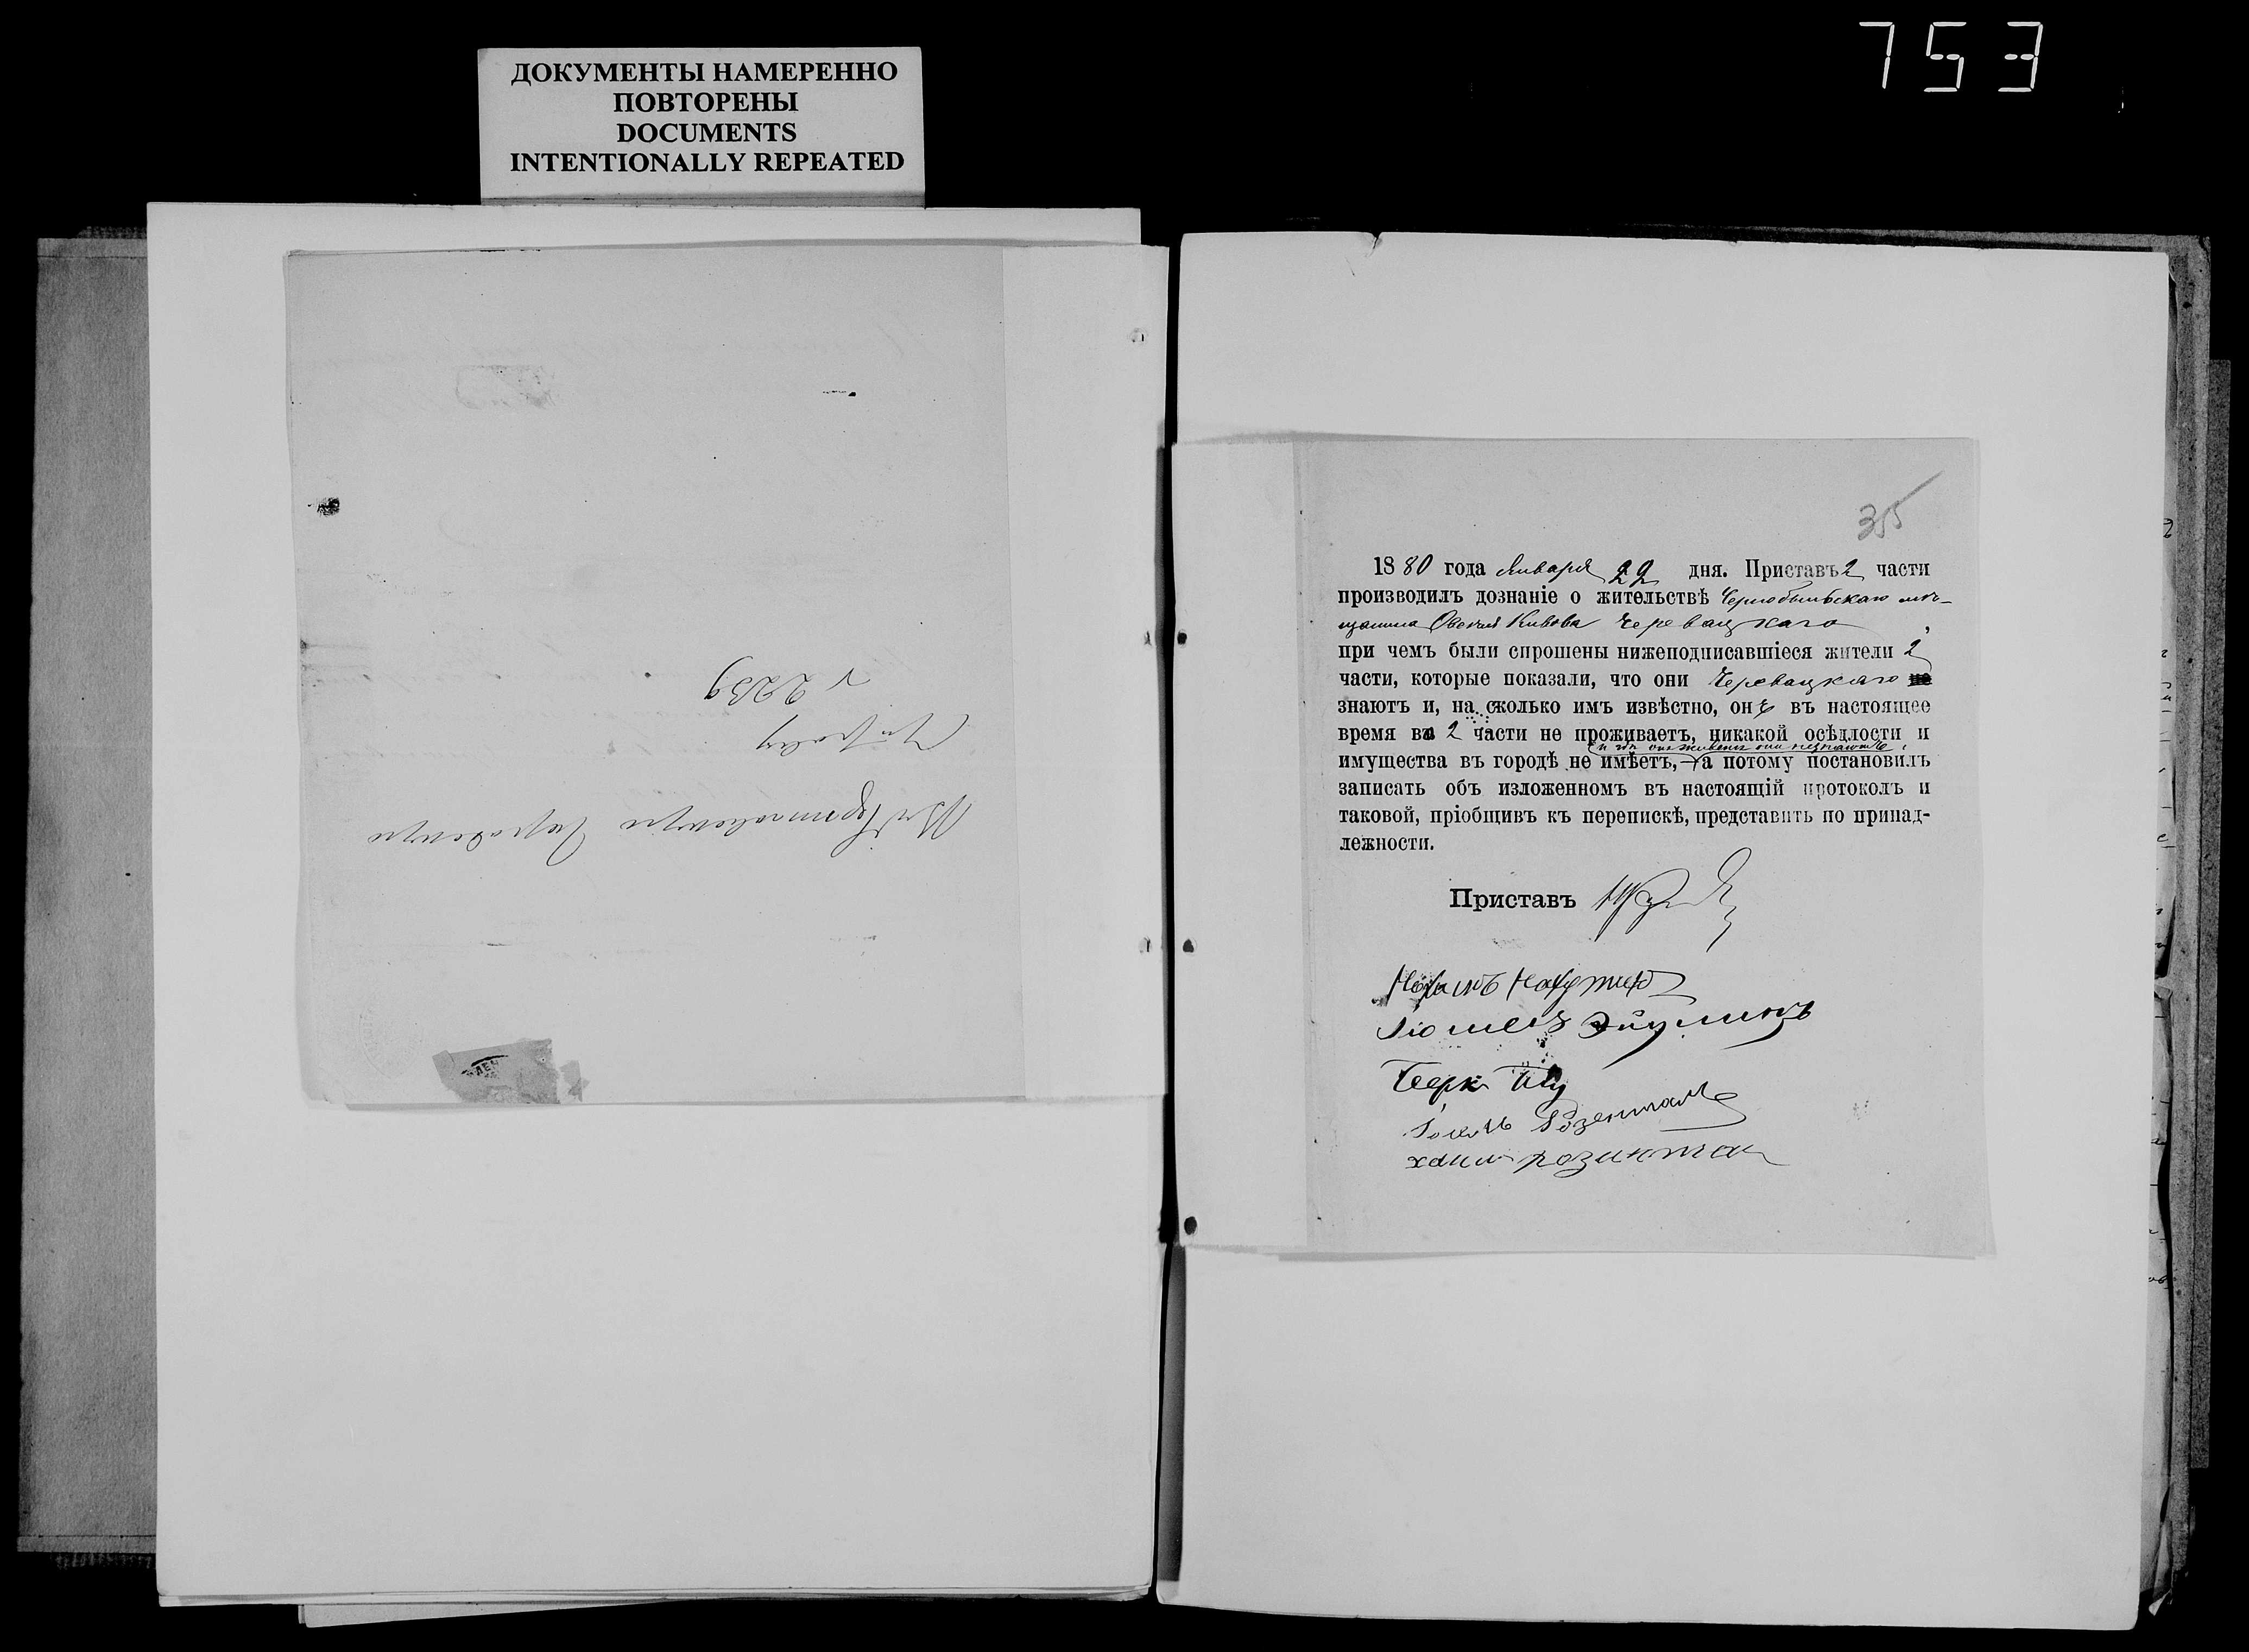 753
ДОКУМЕНТЫ НАМЕРЕННО
ПОВТОРЕНЫ
DOCUMENTS
INTENTIONALLY REPEATED
Управу
№ 2239
355
1880 года Января 22 дня. Приставъ 2 части
производилъ дознаніе о жительствѣ Чернобыльскаго мѣ-
щанина Овсея Кивова Черевацкаго,
при чемъ были спрошены нижеподписавшіеся жители 2
части, которые показали, что они Черевацкаго не
знаютъ и, на сколько имъ извѣстно, онъ въ настоящее
время въ 2 части не проживаетъ, никакой осѣдлости и
и гдѣ онъ живетъ они незнаютъ,
имущества въ городѣ не имѣетъ, а потому постановилъ
записать объ изложенномъ въ настоящій протоколъ и
таковой, пріобщивъ къ перепискѣ, представить по принад-
лежности.
Приставъ
Берк
Розенталь
хаим розинтал